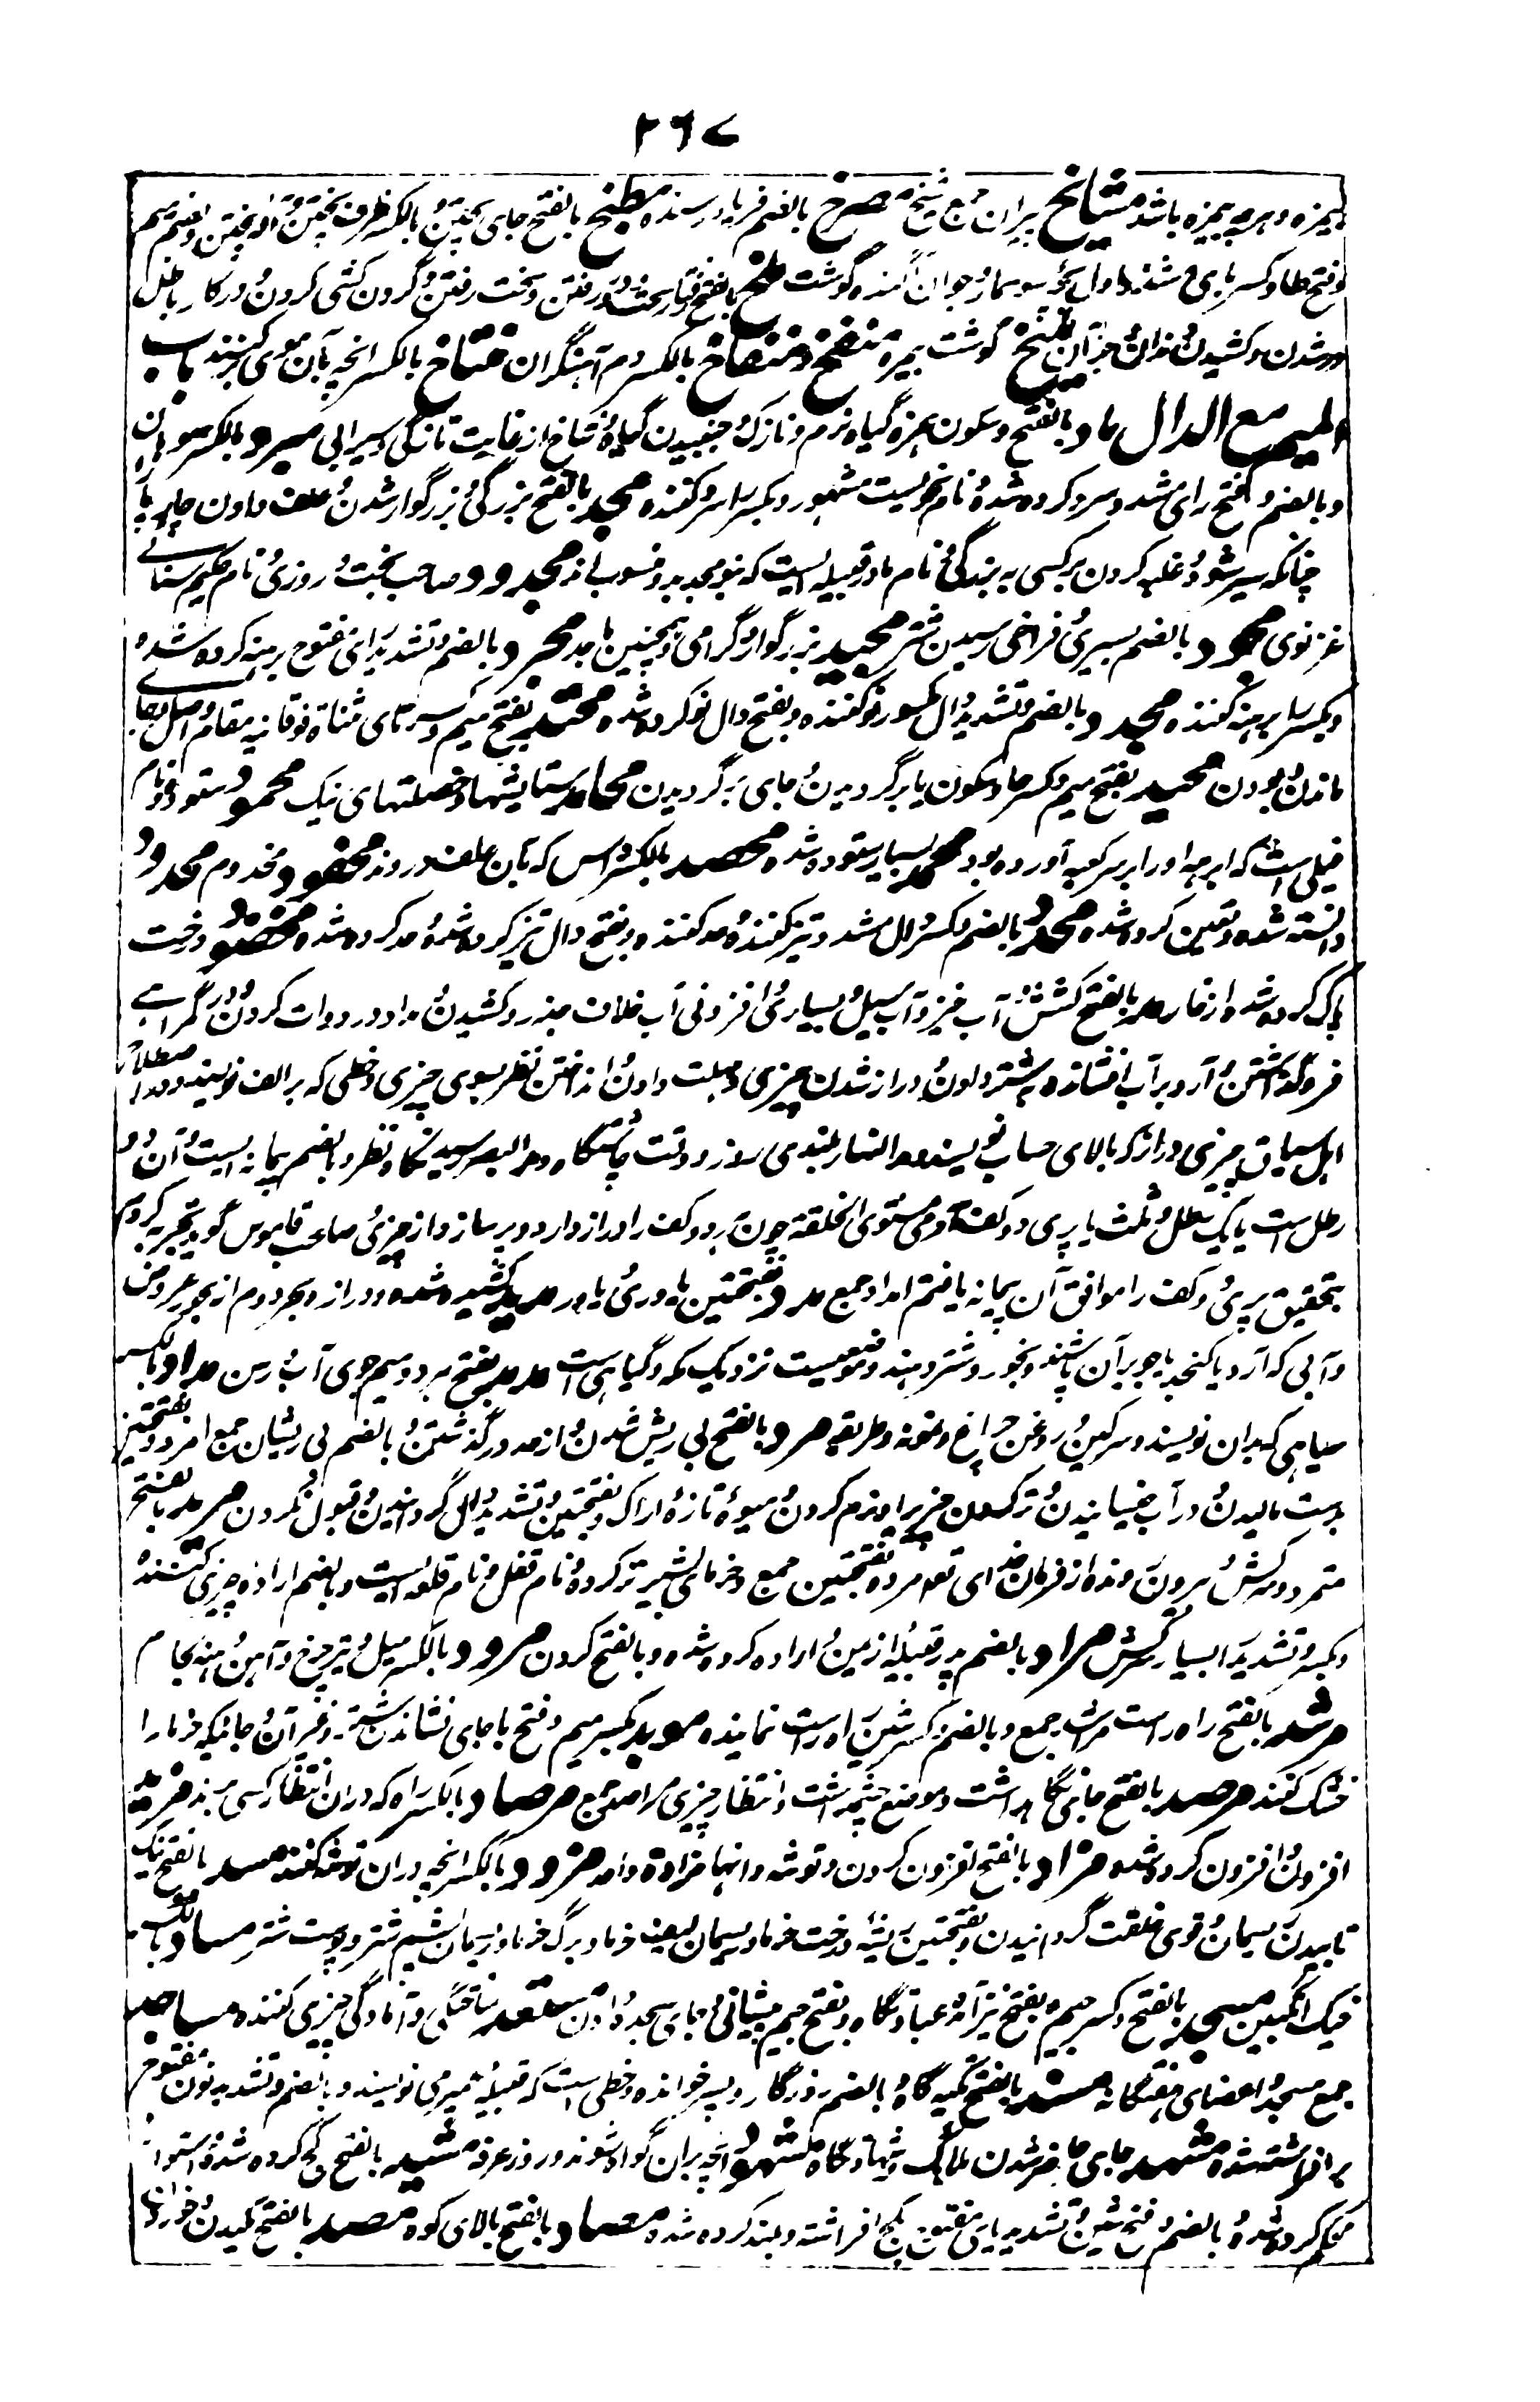 ۲۶۷
بیمزه و هرچه بیمزه باشد مشایخ پیران جمع شیخ مصرخ بالضم فریاد رسنده مطبخ بالفتح جای پختن و بالکسر ظرف پختن و آلهٔ پختن و بضم میم
و فتح طا و کسر بای مشدد اول بچهٔ سوسمار و جوان آگنده گوشت ملخ بالفتح رفتن و سخت رفتن و گردن کشی کردن و در کار باطل
و رشدن و کشیدن دندان و جز آن ملیخ گوشت بیمزه منفخ و منفاخ بالکسر دم آهنگران منتاخ بالکسر انچه بآن موی کنند باب
المیم مع الدال ماد بالفتح و سکون همزه گیاه نرم و نازک و جنبیدن گیاه و شاخ از غایت تازگی و سیرابی مبرد بالکسر سوهان
و بالضم و فتح رای مشدد سرد کرده شده و نام نحویست مشهور و بکسر را سرد کننده مجد بالفتح بزرگی و بزرگوار شدن و علف دادن چارپا
چنانکه سیر شود و غلبه کردن بر کسی به بزرگی و نام مادر قبیله ایست که بنو مجد بدو منسوب اند مجدود صاحب بخت و روزی و نام حکیم سنائی
غزنوی مجود بالضم بسیری و فراخی رسیدن شتر مجید بزرگوار و گرامی و همچنین ماجد مجرد بالضم و تشدید رای مفتوح برهنه کرده شده
و بکسر را برهنه کننده مجدد بالضم و تشدید دال مکسور نو کننده و بفتح دال نو کرده شده محتد بفتح میم و کسر تای مثناة فوقانیه مقام و اصل و بجا
ماندن و بودن محید بفتح میم و کسر حا و سکون یا برگردیدن و جای برگردیدن محامد ستایشها و خصلتهای نیک محمود ستوده و نام
فیلی است که ابرهه او را بر سر کعبه آورده بود محمد بسیار ستوده شده محصد بالکسر داس که بآن علف دروند محفود مخدوم محدود
دانسته شده و تعیین کرده شده محدد بالضم و کسر دال مشدد تیز کننده و حد کننده و بفتح دال تیز کرده شده و حد کرده شده مخضود درخت
پاک کرده شده از خار مد بالفتح کشش و آب خیز و آب سیل و بسیاری و افزونی آب خلاف جذر و کشیدن و مداد در دوات کردن و در گمراهی
فرو گذاشتن و آرد بر آب افشانده بشتر دادن و دراز شدن چیزی و مهلت دادن و انداختن نظر بسوی چیزی و خطی که بر الف نویسند و در اصطلاح
اهل سیاق چیزی دراز که بالای حساب نویسند و مد النهار بلندی روز و وقت چاشتگاه و مد البصر رسیدنگاه نظر و بالضم پیمانه ایست و آن دو
رطل است یا یک رطل و ثلث یا پری دو کف آدمی مستوی الخلقه چون هر دو کف را دراز دارد و پر سازد از چیزی صاحب قاموس گوید تجربه کردم
بتحقیق پری دو کف را موافق آن پیمانه یافتم امداد جمع مدد بفتحتین یاوری و یاور مدید کشیده شده و دراز و بحر دوم از بحور عروض
و آبی که آرد یا کنجد یا جو بر آن پاشند و بخورد شتر دهند و موضعیست نزدیک مکه و گیاهی است مدمد بفتح هر دو میم جوی آب و رسن مداد بالکسر
سیاهی که بدان نویسند و سرگین و روغن چراغ و نمونه و طریقه مرد بالفتح بی ریش شدن و از حد در گذشتن و بالضم بی ریشان جمع امرد و بفتحتین
بدست مالیدن و در آب خیسانیدن و ترکردن چیزی را و نرم کردن و میوهٔ تازهٔ اراک و بفتحتین و تشدید دال گردانیدن و قبول نکردن مرید بالفتح
متمرد و سرکش و بیرون رونده از فرمان خدای تعالی مرده بفتحتین جمع و خرمای بشیر تر کرده و نام قفل و نام قلعه ایست و بالضم اراده چیزی کننده
و بکسر و تشدید را بسیار سرکش مراد بالضم پدر قبیله از یمن و اراده کرده شده و بالفتح گردن مرود بالکسر میل و تیر چرخ و آهن دهنه لجام
مرشد بالفتح راه راست مراشد جمع و بالضم و کسر شین راه راست نماینده مربد بکسر میم و فتح با جای نشاندن شتر و غیر آن و جائیکه خرما را
خشک کنند مرصد بالفتح جای نگاهداشت و موضع چشم داشت و انتظار چیزی مراصد جمع مرصاد بالکسر راه که در ان انتظار کسی برند مزید
افزون و افزون کرده شده مزاد بالفتح افزون کردن و توشه دانها مزادة واحد مزود بالکسر انچه در ان توشه کنند مسد بالفتح نیک
تابیدن ریسمان و قوی خلقت گردانیدن و بفتحتین ریشه درخت خرما و ریسمان لیف خرما و برگ خرما و ریسمان پشم شتر و پوست شتر مساد بالکسر
خیک انگبین مسجد بالفتح و کسر جیم و بفتح نیز آمده عبادتگاه و بفتح جیم پیشانی و جای سجده و آن مستعد ساختگی و آمادگی چیزی کننده مساجد
جمع مسجد و اعضای هفتگانه مسند بالفتح تکیه گاه و بالضم روزگار و پسر خوانده و خطی است که قبیله حمیر می نوشتند و بالضم و تشدید نون مفتوح
برافراشته شده مشهد جای حاضر شدن ملائک و شهادتگاه مشهود انچه بران گواه شوند و روز عرفه مشید بالفتح گچ کرده شده و استوار
محکم کرده شده و بالضم و فتح شین و تشدید یای مفتوح بگچ افراشته و بلند کرده شده مصاد بالفتح بالای کوه مصد بالفتح مکیدن و